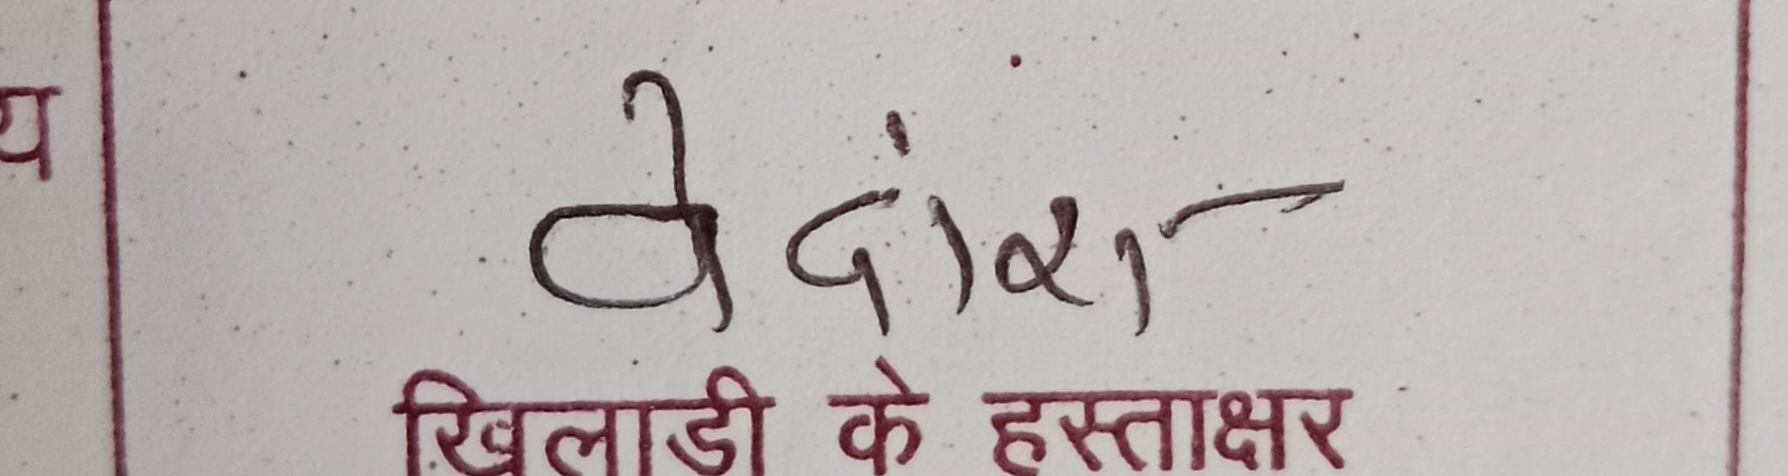 य
वेदांश
खिलाडी के हस्ताक्षर